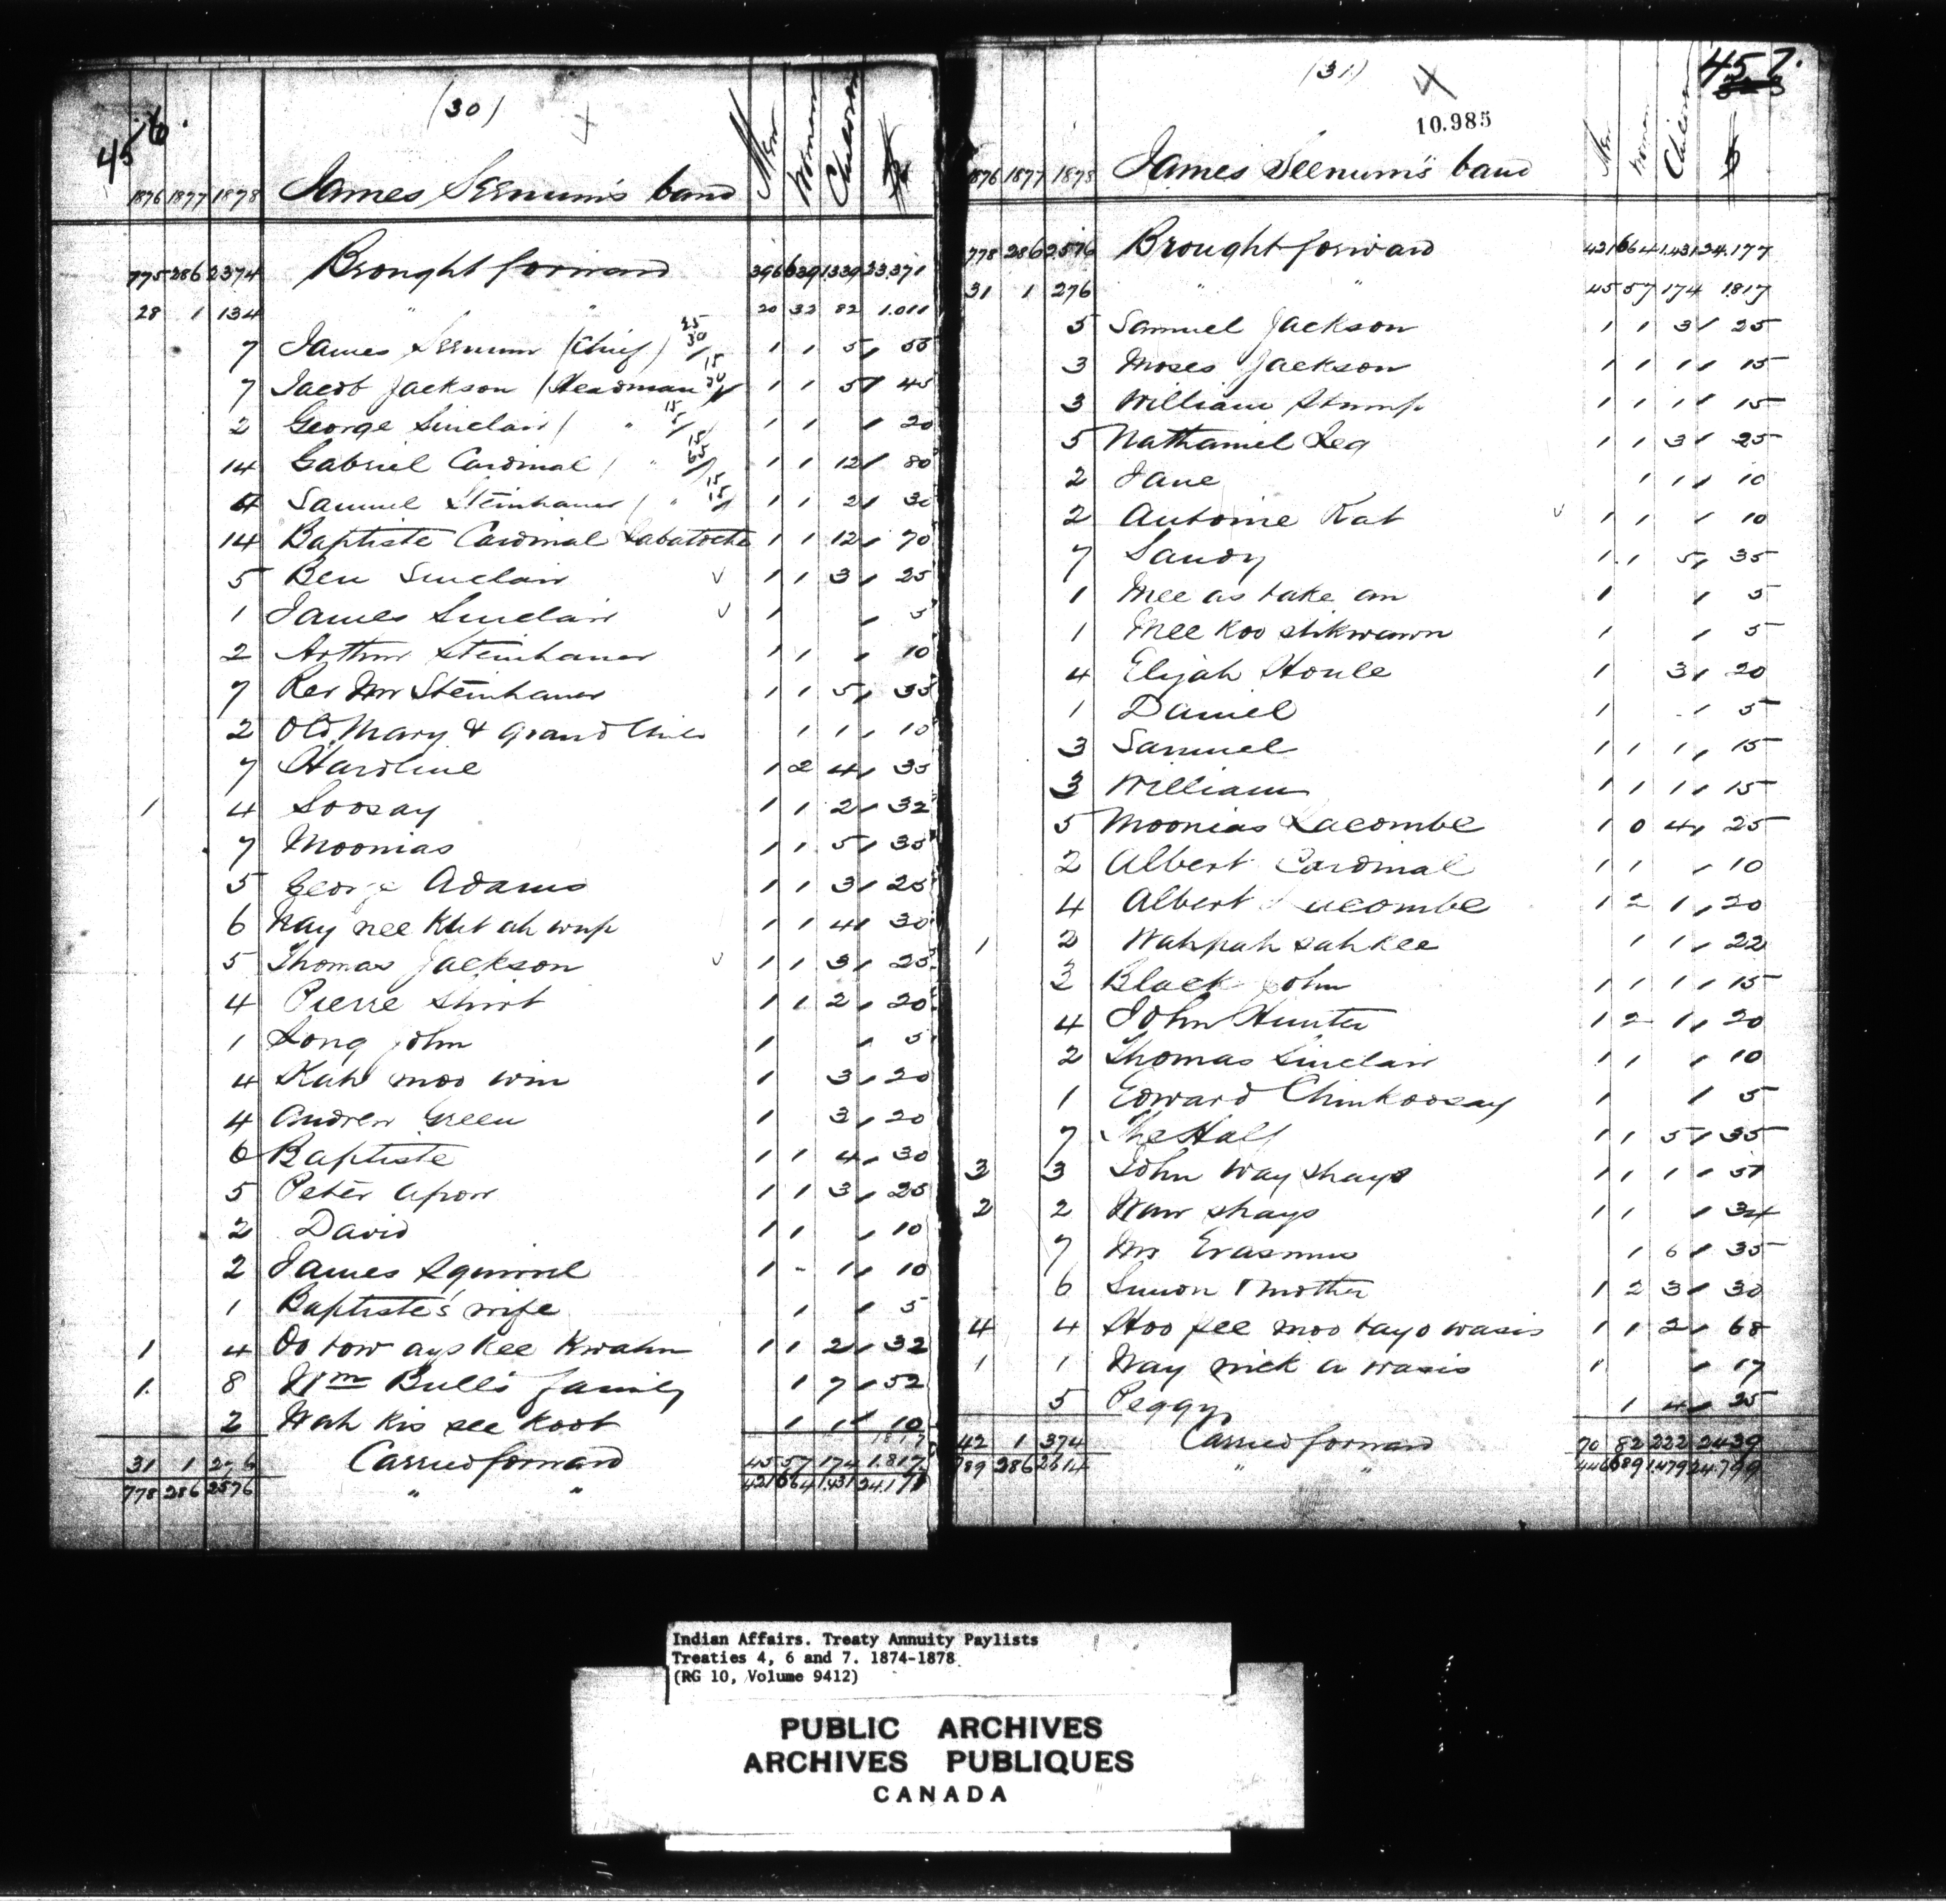 456.
(30)
1876 1877 1878 James Seenum's band Men Women Children $
775 286 2374 Brought forward 396 639 1.339 23.371
28 1 134 " " 20 32 82 1.011
7 James Seenum (Chief) 25 30 1 1 5 55
7 Jacob Jackson (Headman 15 30 1 1 5 45
2 George Sinclair ( " 15 5 1 1 20
14 Gabriel Cardinal ( " 15 65 1 1 12 80
4 Samuel Steinhauer ( " 15 15 1 1 2 30
14 Baptiste Cardinal Labatoche 1 1 12 70
5 Ben Sinclair 1 1 3 25
1 James Sinclair 1 5
2 Arthur Steinhauer 1 1 10
7 Rev Mr Steinhauer 1 1 5 35
2 Old Mary & Grand Child 1 1 10
7 Hardline 1 2 4 35
1 4 Soosay 1 1 2 32
7 Moonias 1 1 5 35
5 George Adams 1 1 3 25
6 Nay nee Kut ah wup 1 1 4 30
5 Thomas Jackson 1 1 3 25
4 Pierre Shirt 1 1 2 20
1 Long John 1 5
4 Kah moo win 1 3 20
4 Andrew Green 1 3 20
6 Baptiste 1 1 4 30
5 Peter Apow 1 1 3 25
2 David 1 1 10
2 James Squirrel 1 - 1 10
1 Baptiste's wife 1 5
1 4 Oo tow ays kee Kwahn 1 1 2 32
1. 8 Wm Bull's family 1 7 52
2 Wah kis see koot 1 1 10
1817
31 1 276 Carried forward 45 57 174 1.817
778 286 2576 " " 421 664 1.431 24.177
457.
(31)
4
10.985
1876 1877 1878 James Seenum's band Men Women Children $
778 286 2576 Brought forward 421 664 1.431 24.177
31 1 276 " " 45 57 174 1817
5 Samuel Jackson 1 1 3 25
3 Moses Jackson 1 1 1 15
3 William Stump 1 1 1 15
5 Nathaniel Leg 1 1 3 25
2 Jane 1 1 10
2 Antoine Kat 1 1 10
7 Sandy 1 1 5 35
1 Mee as take am 1 5
1 Mee koo stikwawn 1 5
4 Elijah Houle 1 3 20
1 Daniel 1 5
3 Samuel 1 1 1 15
3 William 1 1 1 15
5 Moonias Lacombe 1 0 4 25
2 Albert Cardinal 1 1 10
4 Albert Lacombe 1 2 1 20
1 2 Wahpah sah kee 1 1 22
3 Black John 1 1 1 15
4 John Hunter 1 2 1 20
2 Thomas Sinclair 1 1 10
1 Edward Chinkoosay 1 5
7 The Half 1 1 5 35
3 3 John Way shays 1 1 1 51
2 2 Waw shays 1 1 34
7 Mrs Erasmus 1 6 35
6 Simon & mother 1 2 3 30
4 4 Hoo see moo tayo wasis 1 1 2 68
1 1 Way nick a wasis 1 17
5 Peggy 1 4 25
42 1 374 Carried forward 70 82 222 2439
789 286 2614 " " 446 689 1.479 24.799
Indian Affairs. Treaty Annuity Paylists
Treaties 4, 6 and 7. 1874-1878
(RG 10, Volume 9412)
PUBLIC ARCHIVES
ARCHIVES PUBLIQUES
CANADA